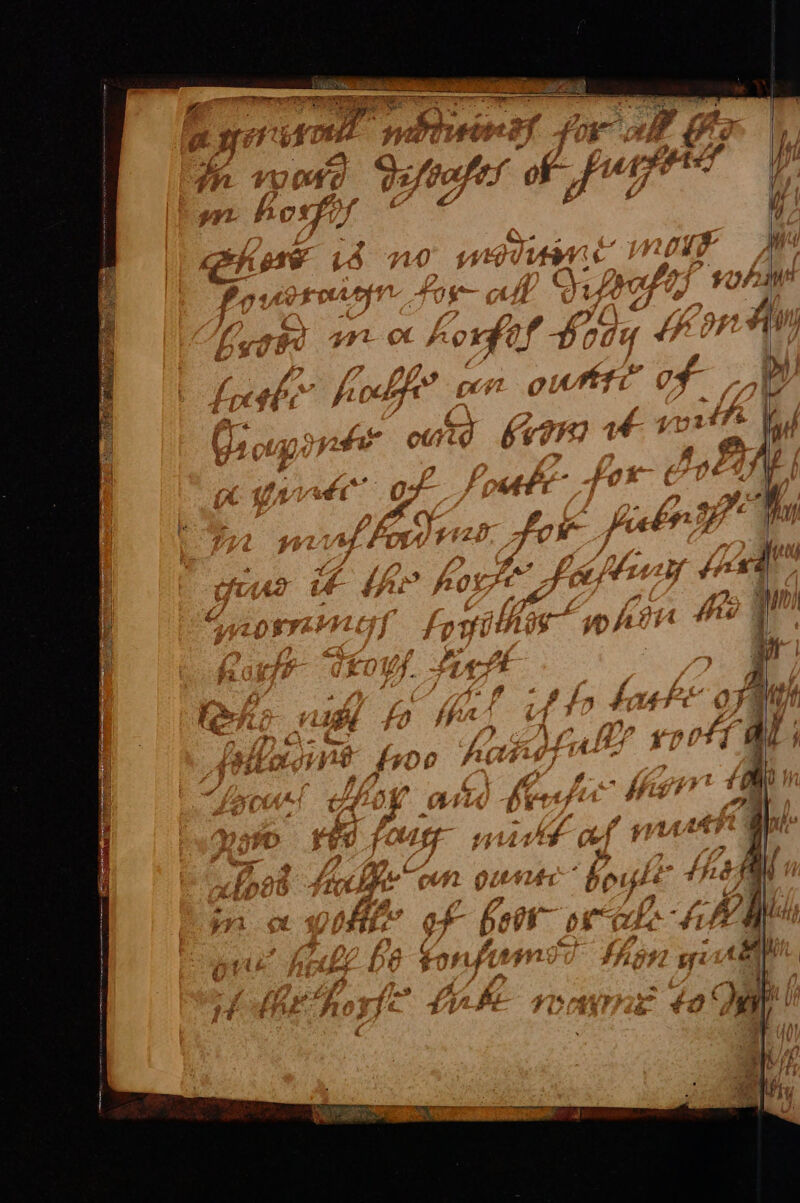 a generall meducines for all the
in ward diseases or surfeits
in horses
There is no meducine more
soueraign for all diseases which
breed in a horses body then to
take halfe an ounce of
Diapente and brew it with
a pinte of sacke for Colds
in muskadine for sicknesse
giue it the horse fasting three
mornings together when the
horse droup first
The next to that is to take of
selladine two handfulls roots
leaues and bruse them
red sage mint of much
aloes halfe an ounce boyle these
in a pottle of beer or ale till
one halfe be consumed then giue
it the horse luke warme to